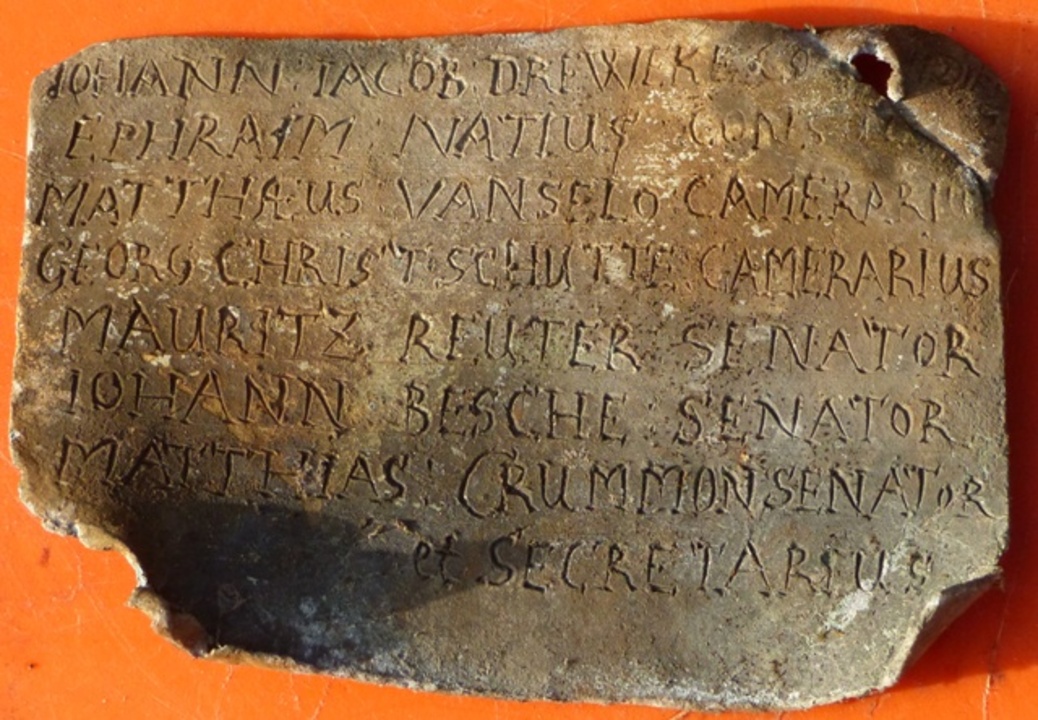 IOHANN : IACOB : DREWEKE
EPHRAIM : NATIUS : CONS
MATTHÆUS VANSELO CAMERARIU
GEORG CHRIST : SCHUTTE : CAMERARIUS
MAURITZ REUTER SENATOR
IOHANN BESCHE : SENATOR
MATTHIAS : CRUMMON SENATOR
et SECRETARIUS